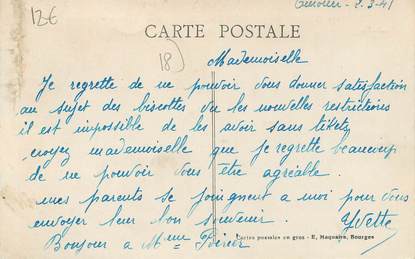 12€
2-3-41
CARTE POSTALE
18)
Mademoiselle
Je regrette de ne pouvoir vous donner satisfaction
au sujet des biscottes vu les nouvelles restrictions
il est impossible de les avoir sans tikets
croyez mademoiselle que je regrette beaucoup
de ne pouvoir vous être agréable.
mes parents se joignent a moi pour vous
envoyer leur bon souvenir. Yvette
Cartes postales en gros - E. Maquaire, Bourges
Bonjour a Mme